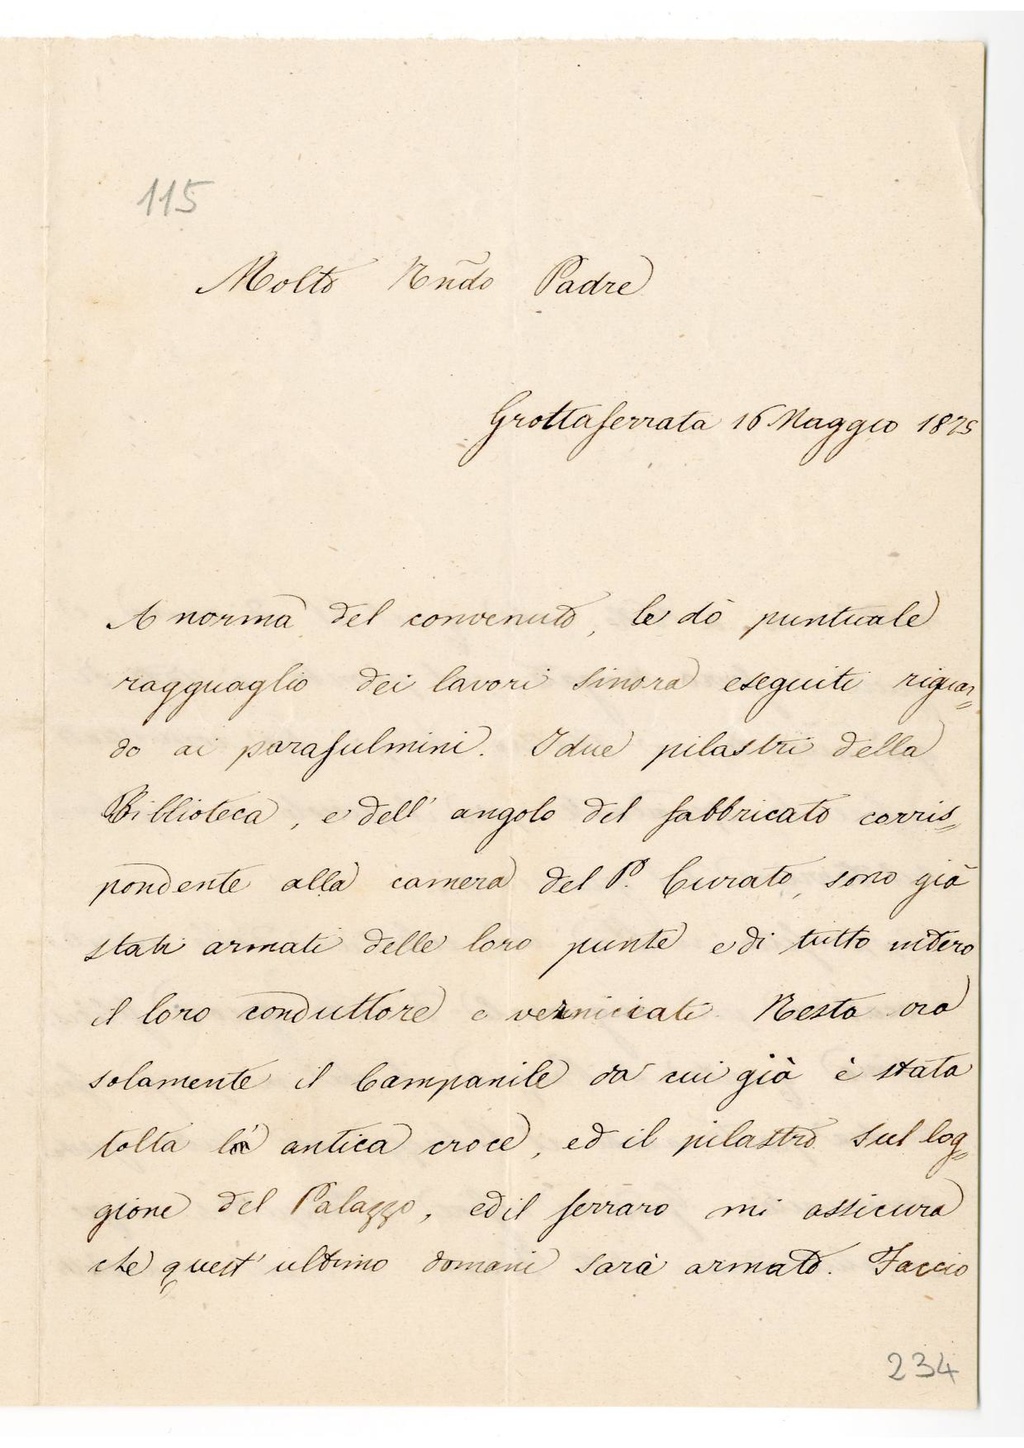 115
Molto Rñdo Padre
Grottaferrata 16 Maggio 1875
A norma del convenuto, le dò puntuale
ragguaglio dei lavori sinora eseguiti riguar=
do ai parafulmini. I due pilastri della
Biblioteca, e dell' angolo del fabbricato corris=
pondente alla camera del P. Curato, sono già
stati armati delle loro punte e di tutto intero
il loro conduttore e verniciati. Resta ora
solamente il Campanile da cui già è stata
tolta la antica croce, ed il pilastro sul log=
gione del Palazzo, ed il ferraro mi assicura
che quest' ultimo domani sarà armato. Faccio
234